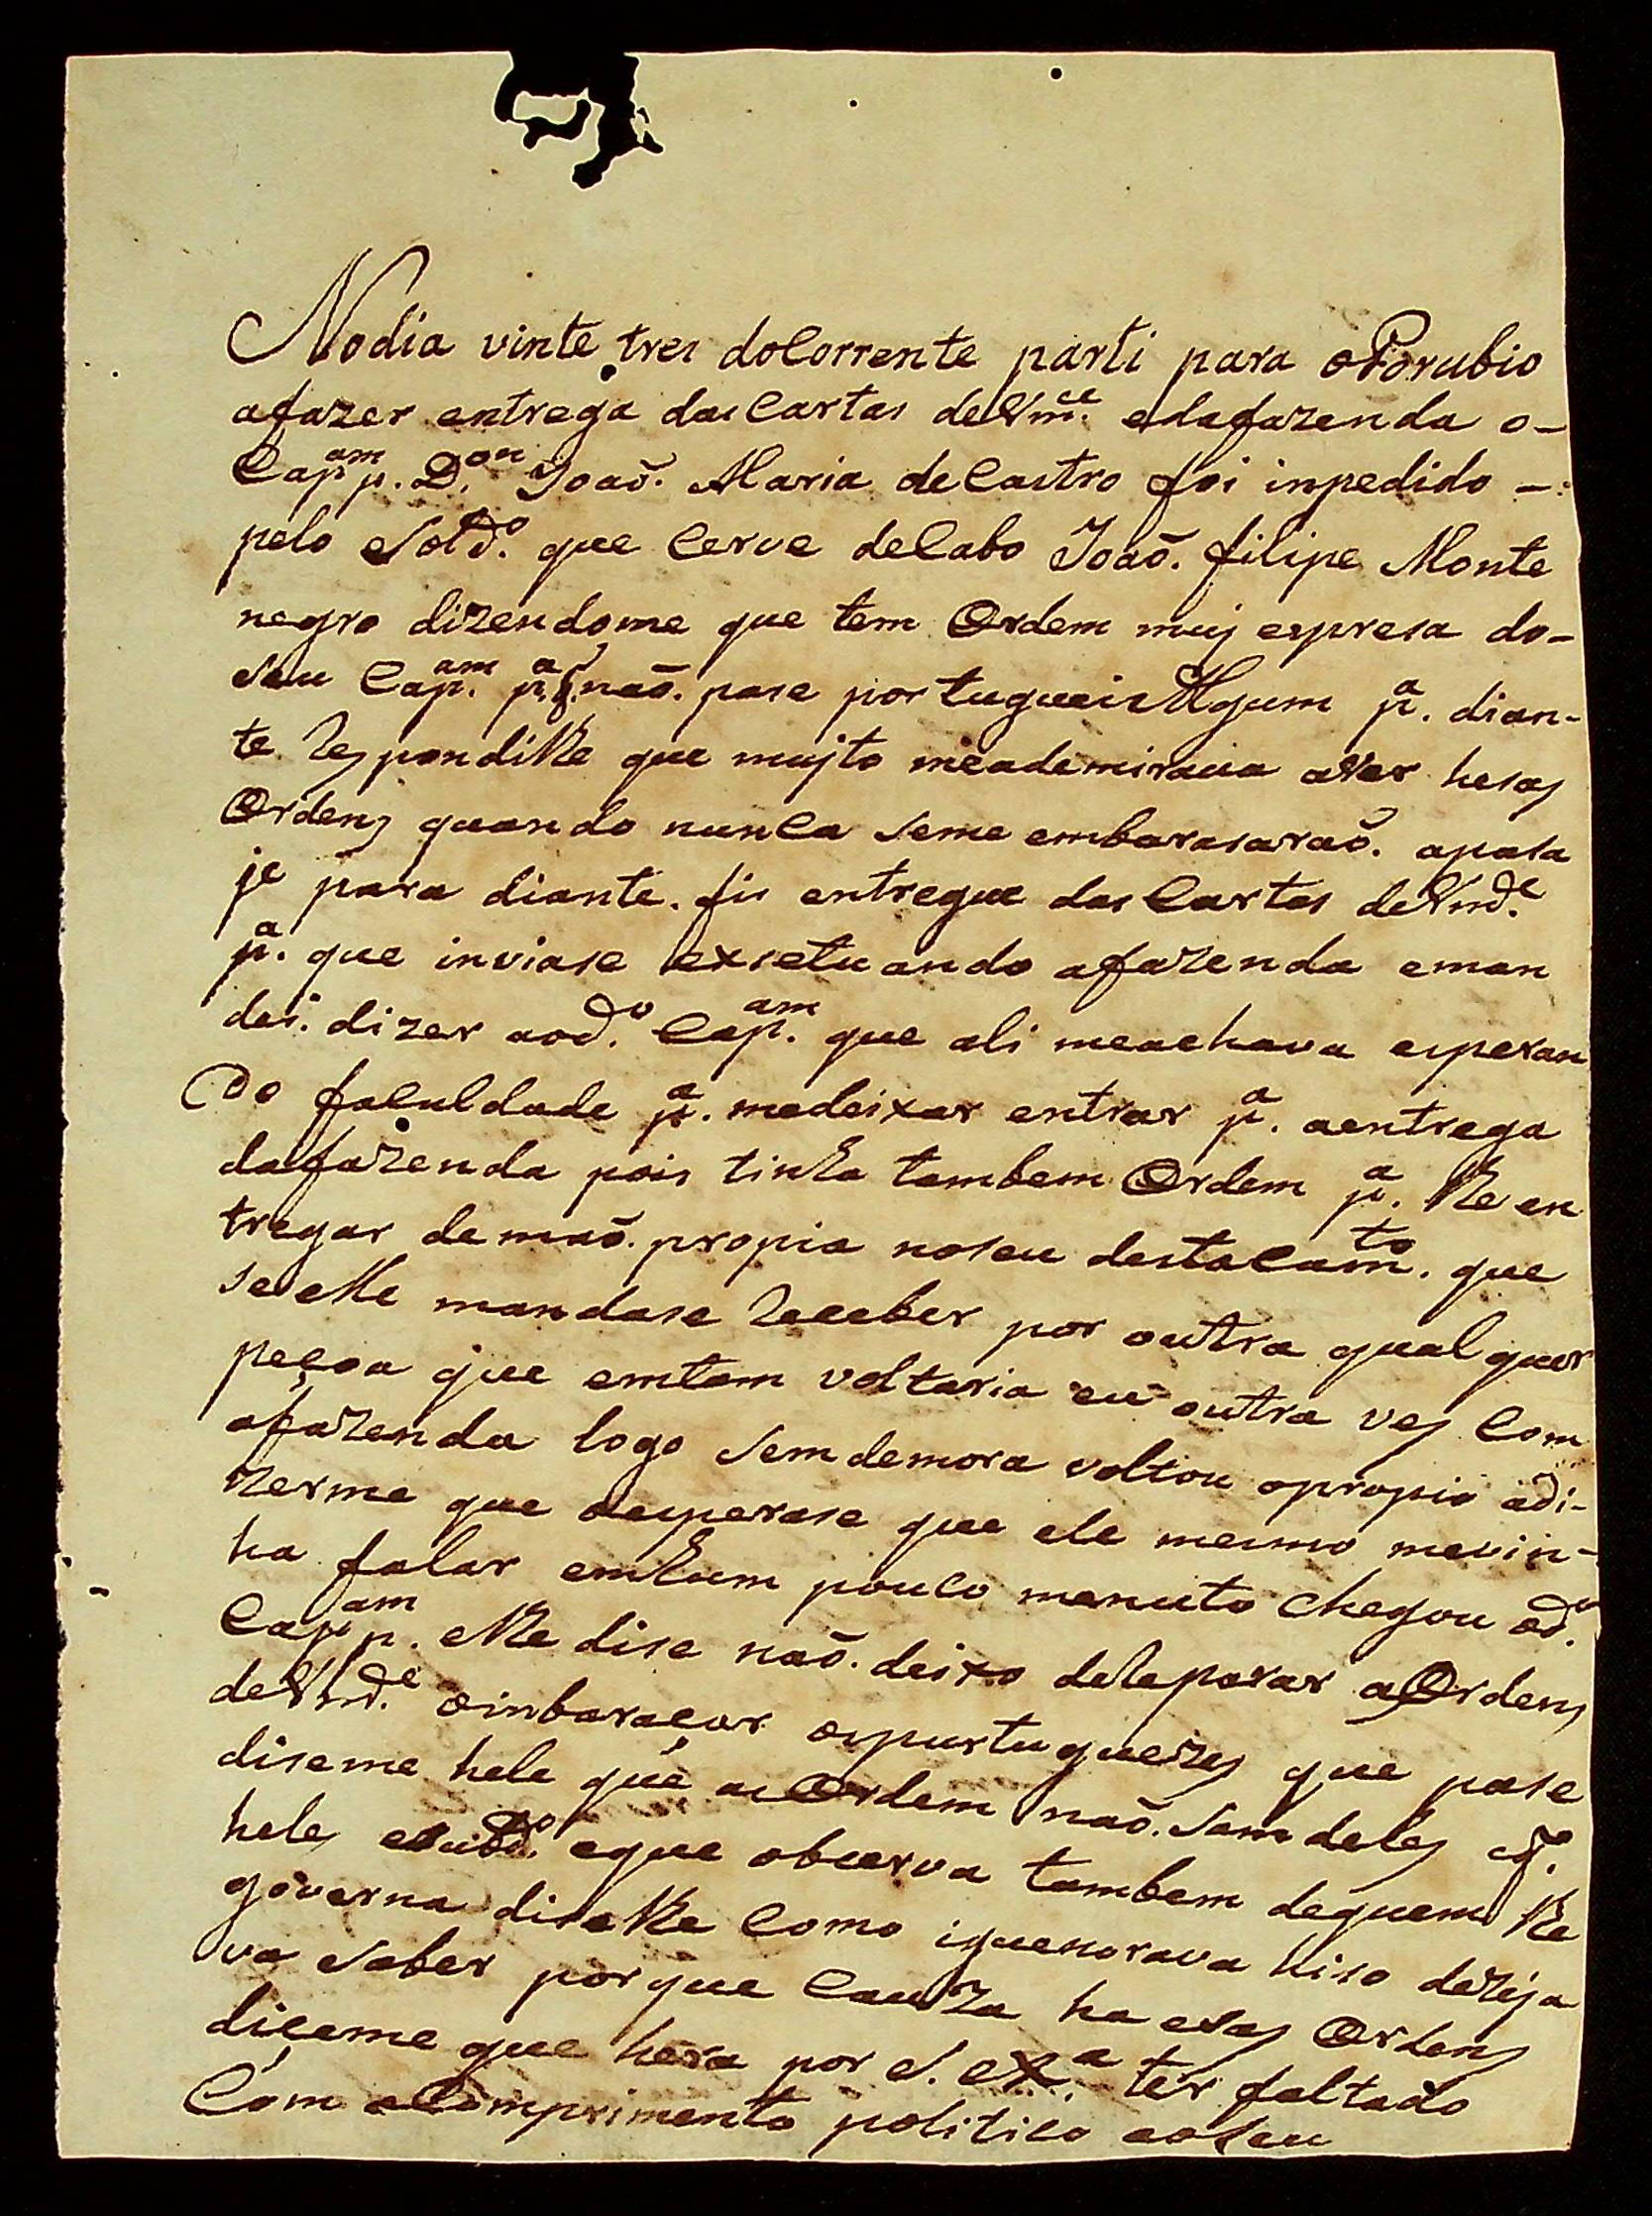 Nodia vinte tres docorrente parti para oPorubio
afazer entrega das Cartas deVm.ce edafazenda o-
Capp.am D.on Joaõ. Maria deCastro foi inpedido -
pelo Sold.o que Cerve deCabo Joaõ. filipe Monte
negro dizendome que tem Ordem muj espresa do-
Seu Cap.am p.a q naõ. pase portugueis Algum p.a dian-
te Respondilhe que mujto meademirava aver hesas
Ordens quando nunca Seme embarasaraõ. apasa
je para diante. fis entregue das Cartas deVmd.e
p.a que inviase exsetuando afazenda eman
dei dizer aod.o Cap.am que ali meachava esperan
do faculdade p.a medeixar entrar p.a aentrega
dafazenda pois tinha tambem Ordem p.a lhe en
tregar demaõ. propia noseu destacam.to que
seelle mandase Receber por outra qual quer
peçoa que emtam voltaria eu outra ves Com
afazenda logo Sem demora voltou opropio adi-
zerme que aesperase que ele mesmo mevin-
ha falar emhum pouco menuto Chegou od.o
Capp.am elhe dise naõ. deixo deReparar aOrdens
deVmd.e oinbaraçar osportuguezes que pase
diseme hele que as Ordem naõ. Sam deles eq.
hele eque observa tambem dequem lhe
governa diselhe Como iguenorava hiso dezeja
va Saber porque Cauza ha esas Ordens
diçeme que hera por S. ex.a ter faltado
Com oComprimento politico aoseu